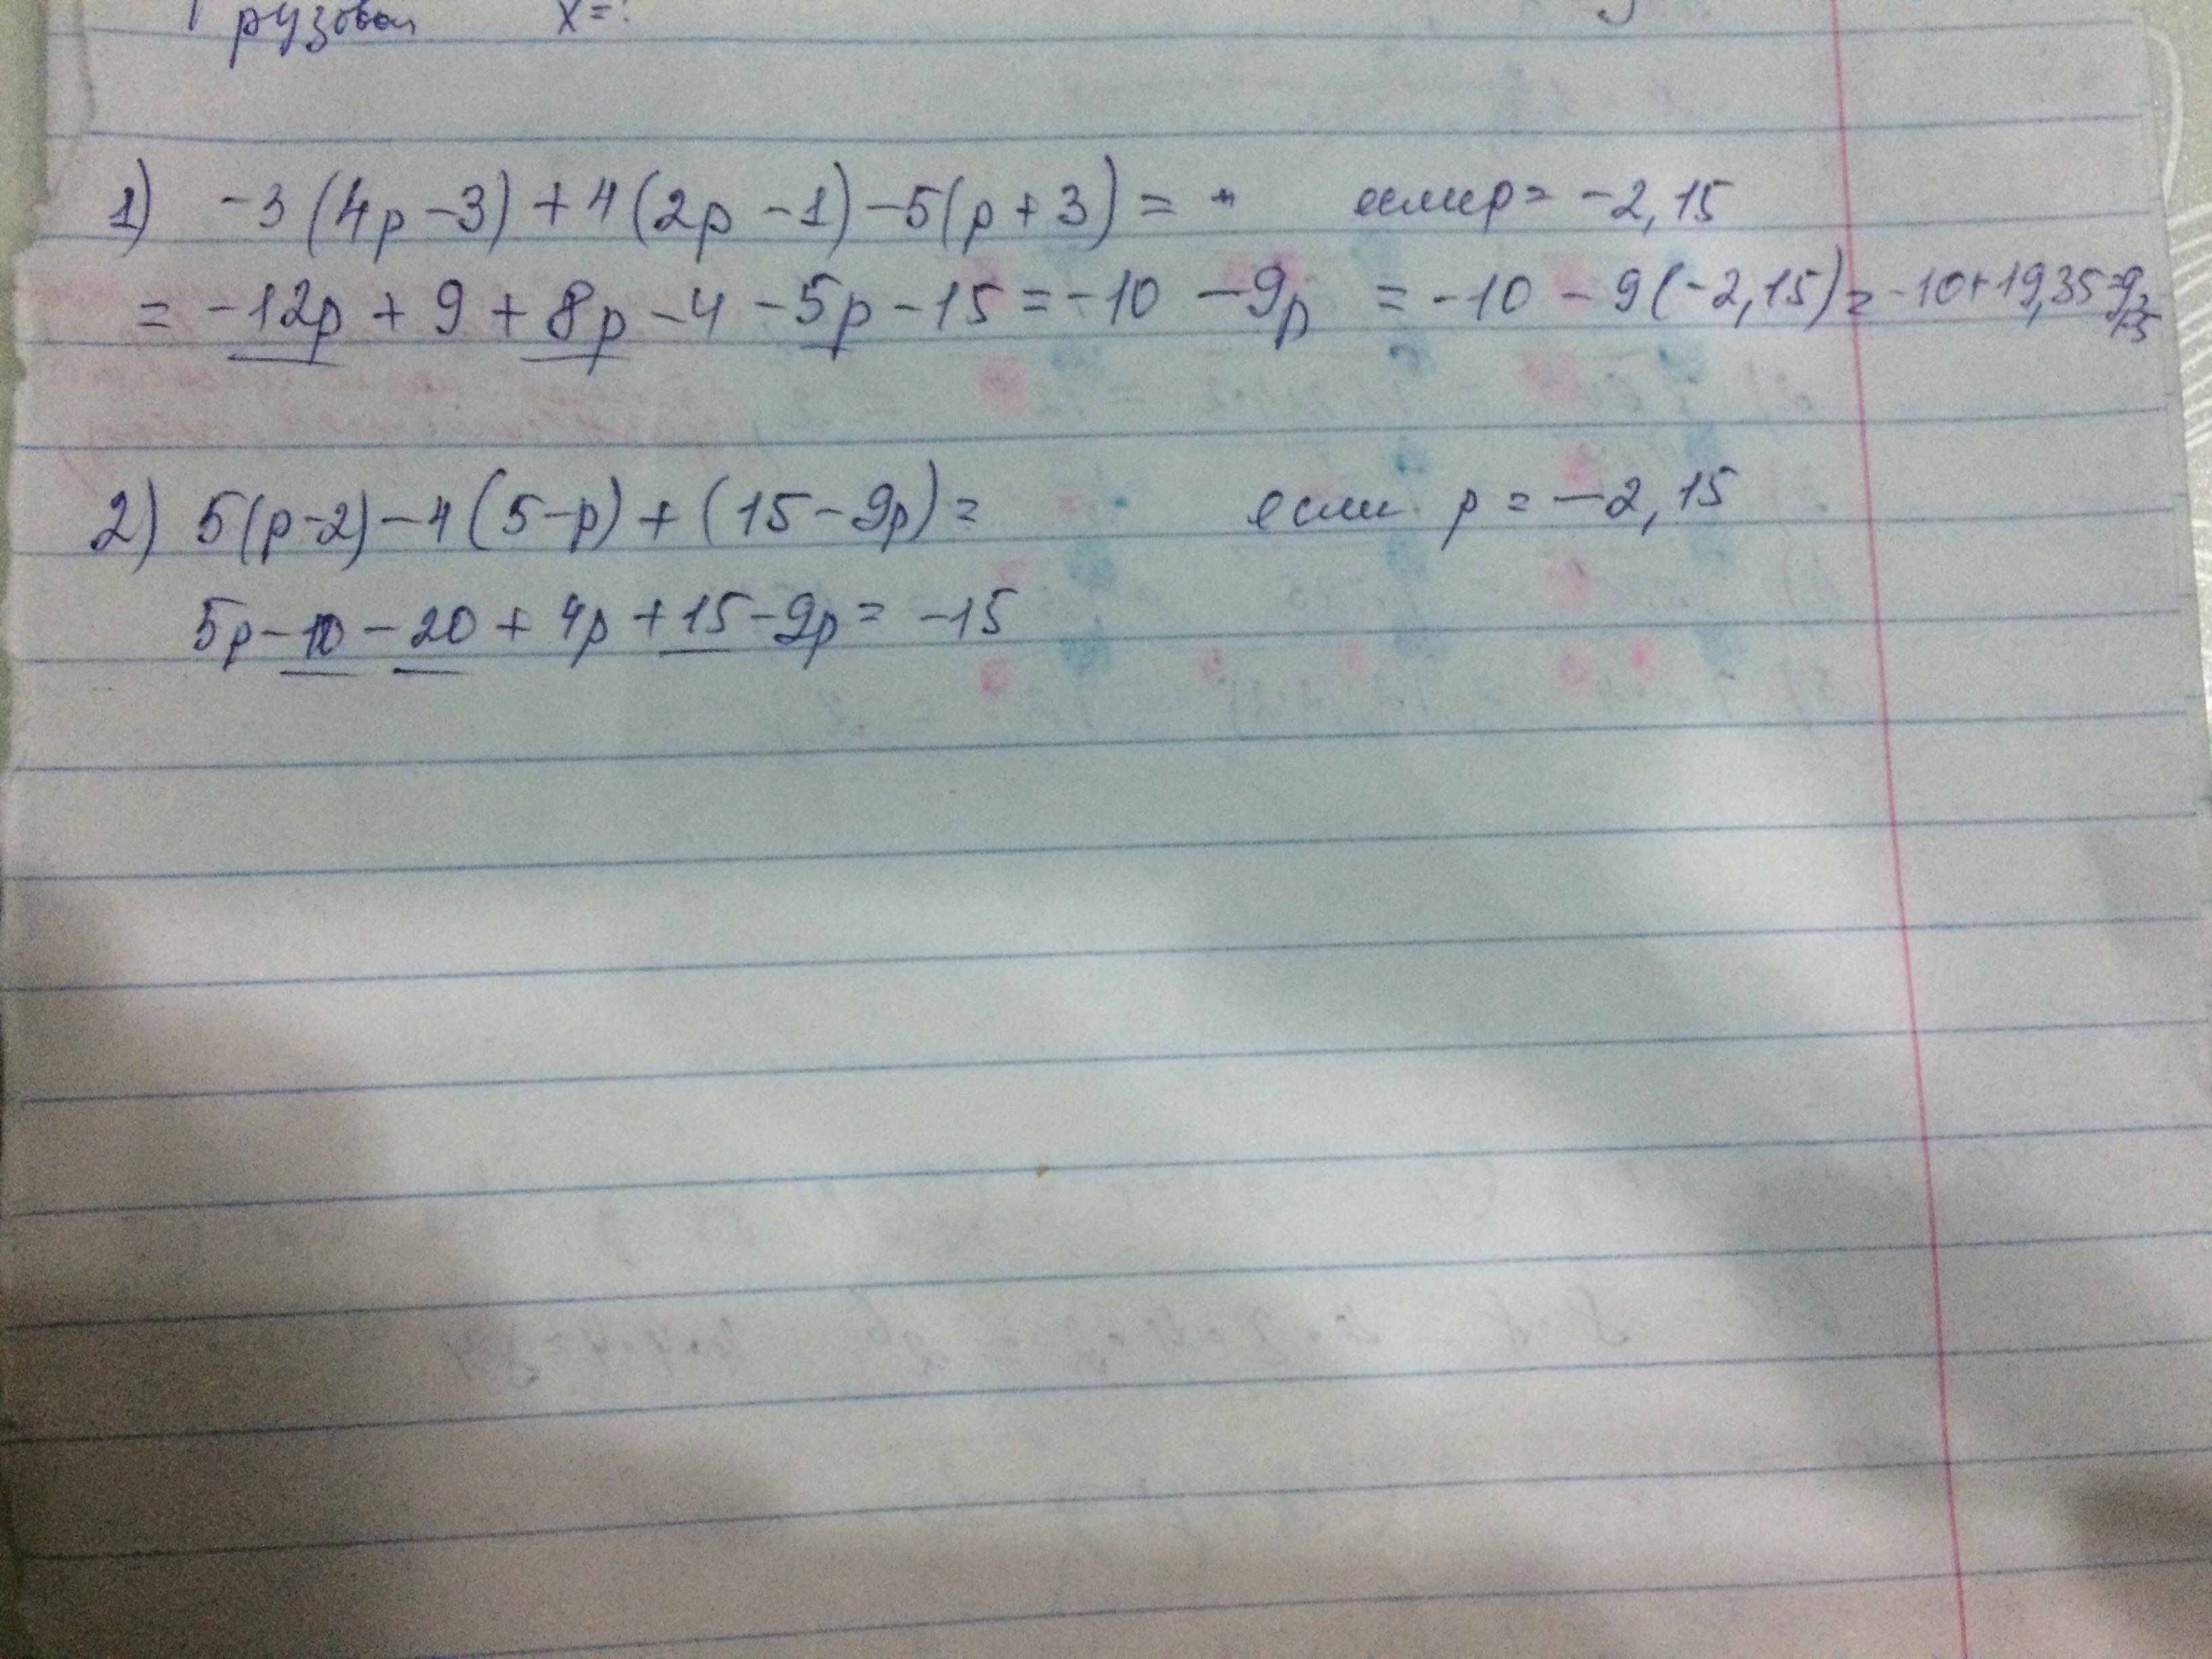 грузовая x=?
1) -3(4p-3)+4(2p-1)-5(p+3)= если p= -2,15
= -12p + 9 + 8p - 4 - 5p - 15 = -10 - 9p = -10 - 9(-2,15) = -10+19,35=9,35
2) 5(p-2)-4(5-p)+(15-9p)= если p = -2,15
5p-10-20+4p+15-9p= -15